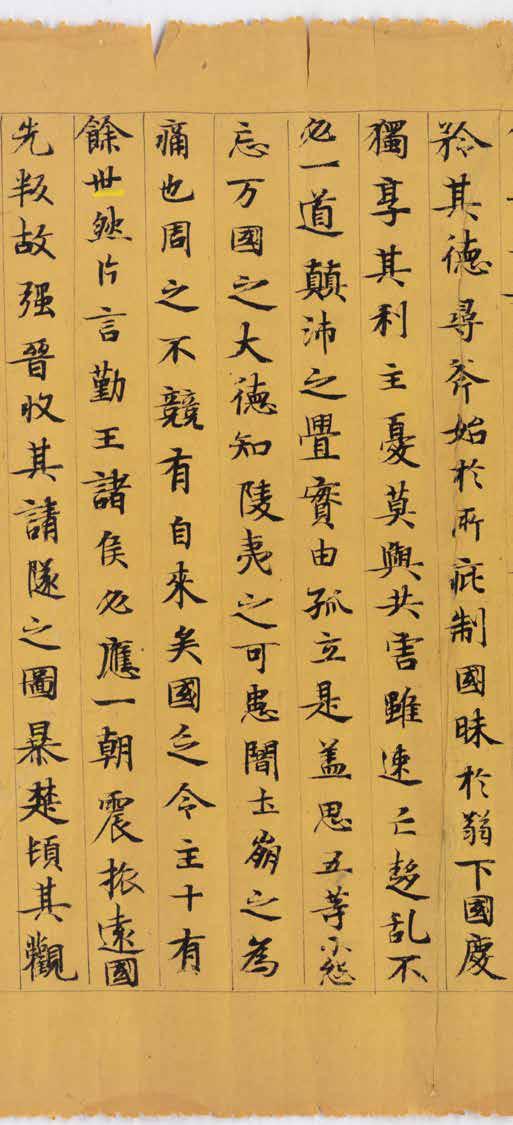 矜其德尋斧始扵所庇制國昧扵弱下國慶
獨享其利主憂莫與共害雖速亡趍乱不
必一道顛沛之舋實由孤立是盖思五等小怨
忘万國之大德知陵夷之可患闇土崩之為
痛也周之不競有自來矣國乏令主十有
餘世然片言勤王諸侯必應一朝震振遠國
先叛故强晉收其請隧之圖暴楚頓其觀